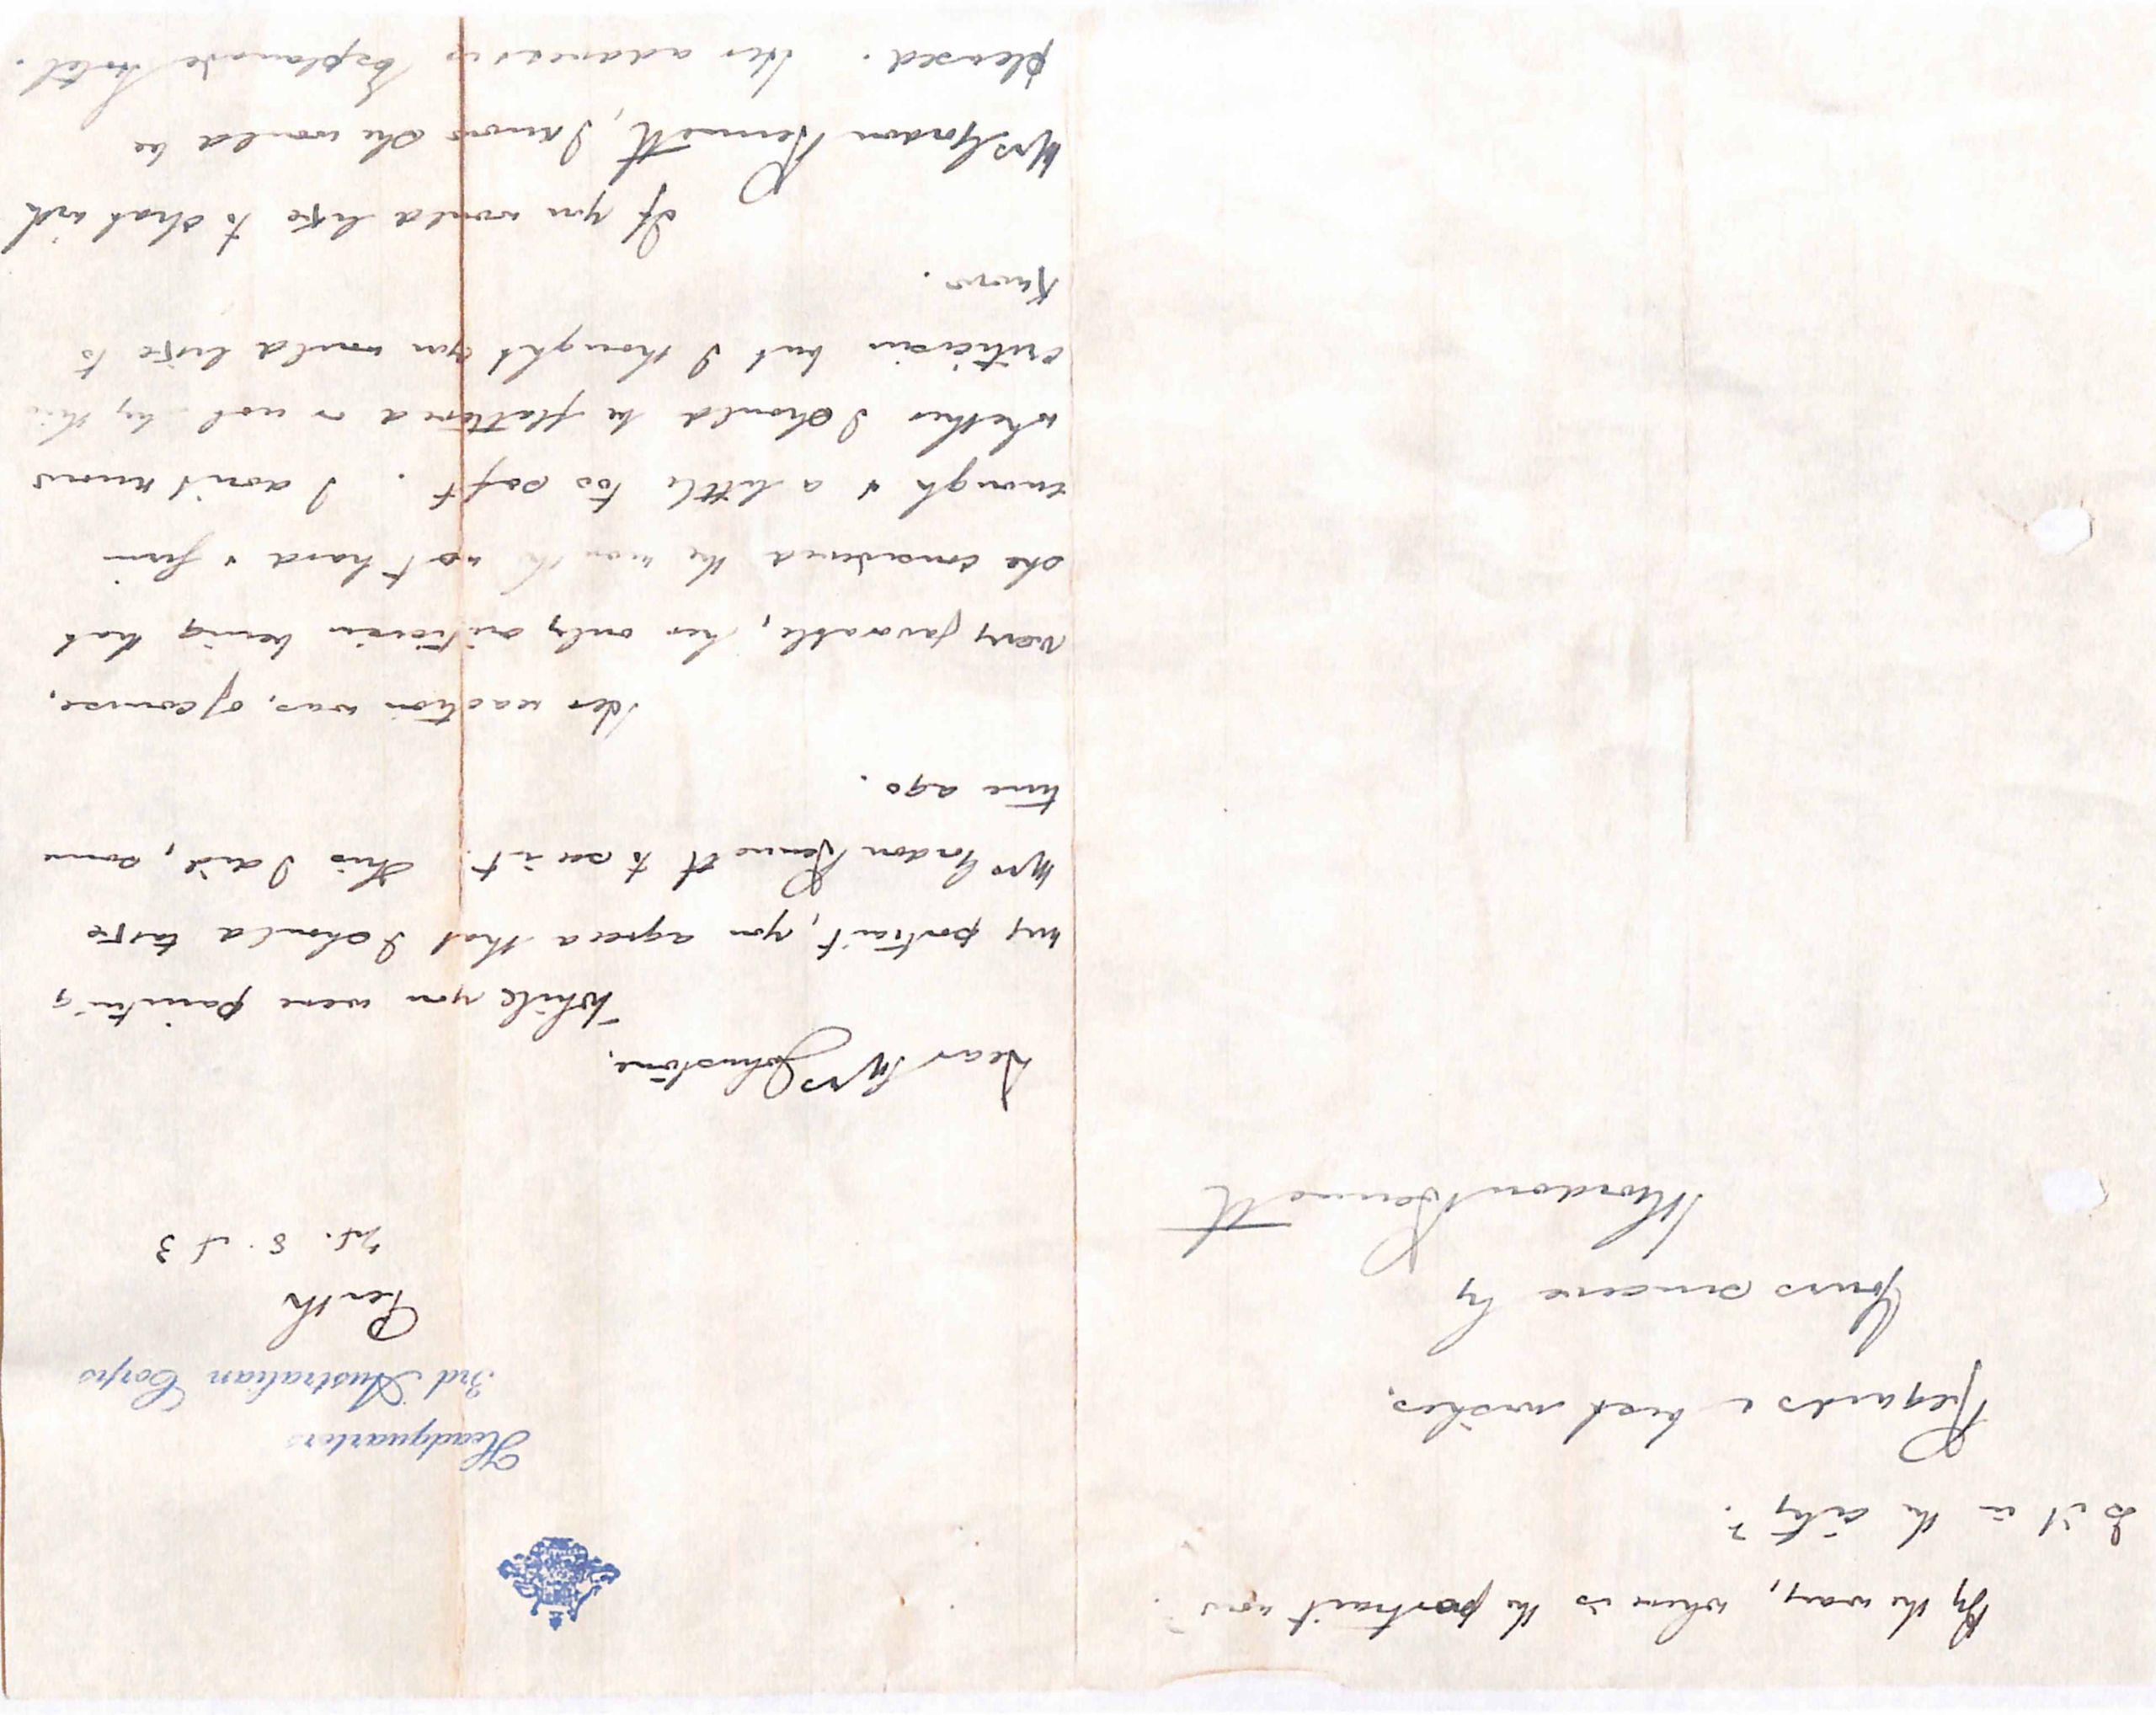 Headquarters
3rd Australian Corps
Perth
Dear Mrs Johnstone,
While you were painting
my portrait, you agreed that I should take
Mrs Gordon Bennett to see it. This I did, some
time ago.
Her reaction was, of course,
very favorable, her only criticism being that
she considered the mouth not hard & firm
enough & a little too soft. I don't know
whether I should be flattered or not by this
criticism but I thought you would like to
know.
If you would like to chat with
Mrs Gordon Bennett, I know she would be
pleased. Her address is Esplanade Hotel.
By the way, where is the portrait now?
Is it in the city?
Regards & best wishes.
Yours sincerely
Gordon Bennett